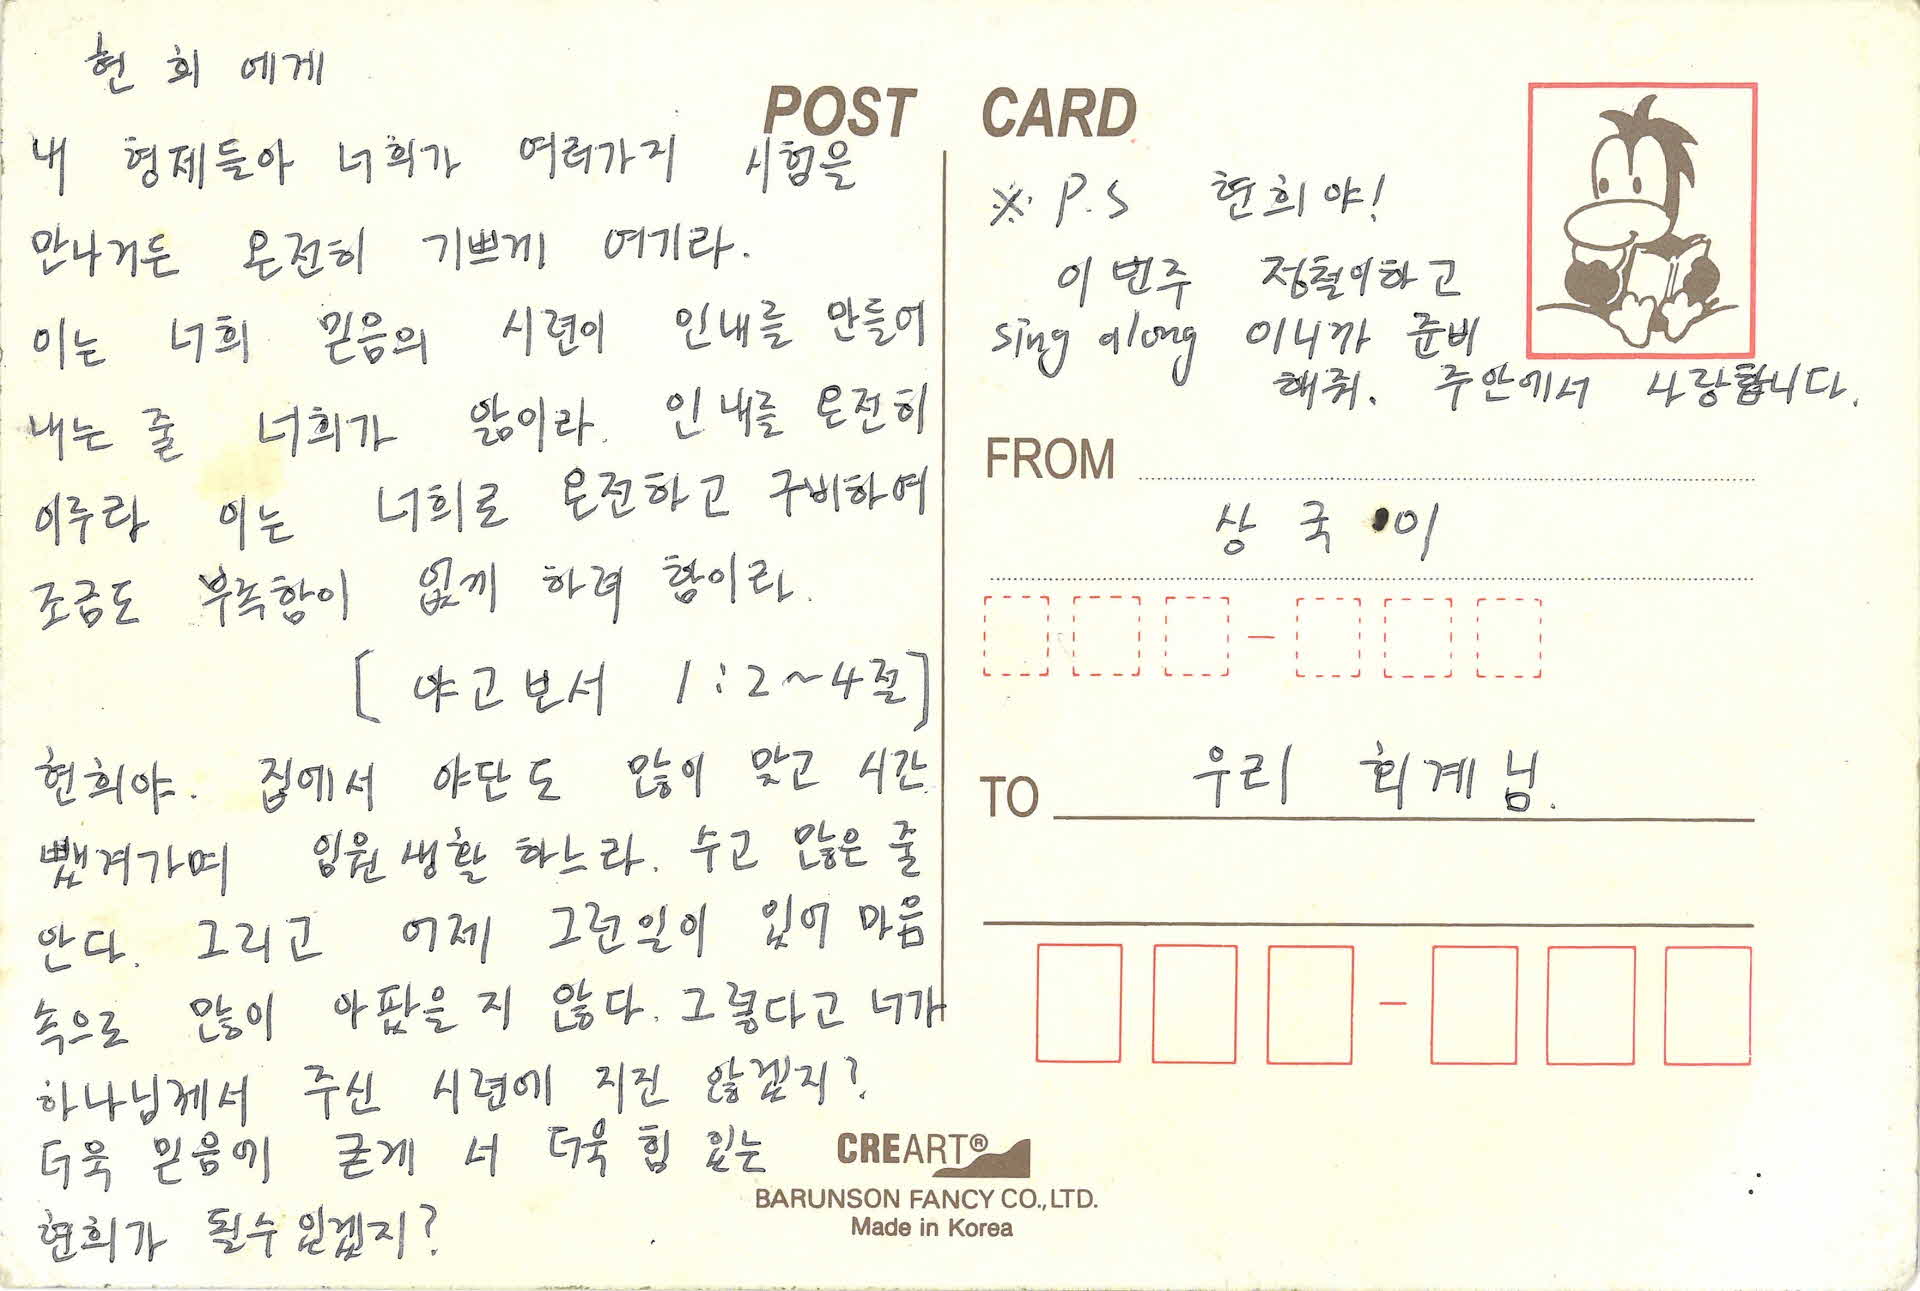 현희에게
내 형제들아 너희가 여러가지 시험을
만나거든 온전히 기쁘게 여기라.
이는 너희 믿음의 시련이 인내를 만들어
내는 줄 너희가 앎이라. 인내를 온전히
이루라 이는 너희로 온전하고 구비하여
조금도 부족함이 없게 하려 함이라.
[야고보서 1:2~4절]
현희야. 집에서 야단도 많이 맞고 시간
뺐겨가며 임원생활 하느라. 수고 많은 줄
안다. 그리고 어제 그런일이 있어 마음
속으로 많이 아팠을 지 않다. 그렇다고 너가
하나님께서 주신 시련에 지진 않겠지?
더욱 믿음에 굳게 서 더욱 힘 있는
현희가 될수있겠지?
POST CARD
※ P.S 현희야!
이번주 정철이하고
sing along 이니까 준비
해줘. 주안에서 사랑합니다.
FROM
상국이
TO 우리 회계님.
CREART®
BARUNSON FANCY CO.,LTD.
Made in Korea